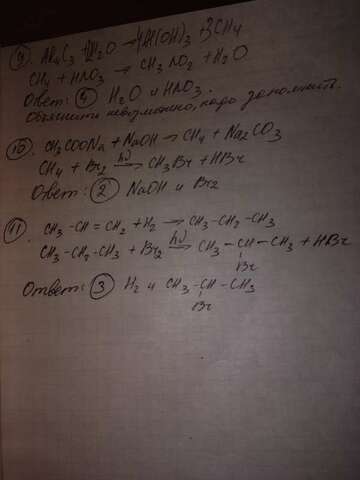 9. Al₄C₃ + 12H₂O → 4Al(OH)₃ + 3CH₄
CH₄ + HNO₃ → CH₃NO₂ + H₂O
Ответ: 4 H₂O и HNO₃.
Объяснить невозможно, надо запомнить.
10. CH₃COONa + NaOH → CH₄ + Na₂CO₃
CH₄ + Br₂ hν→ CH₃Br + HBr
Ответ: 2 NaOH и Br₂
11. CH₃-CH=CH₂ + H₂ → CH₃-CH₂-CH₃
CH₃-CH₂-CH₃ + Br₂ hν→ CH₃-CH-CH₃ + HBr
Br
Ответ: 3 H₂ и CH₃-CH-CH₃
Br